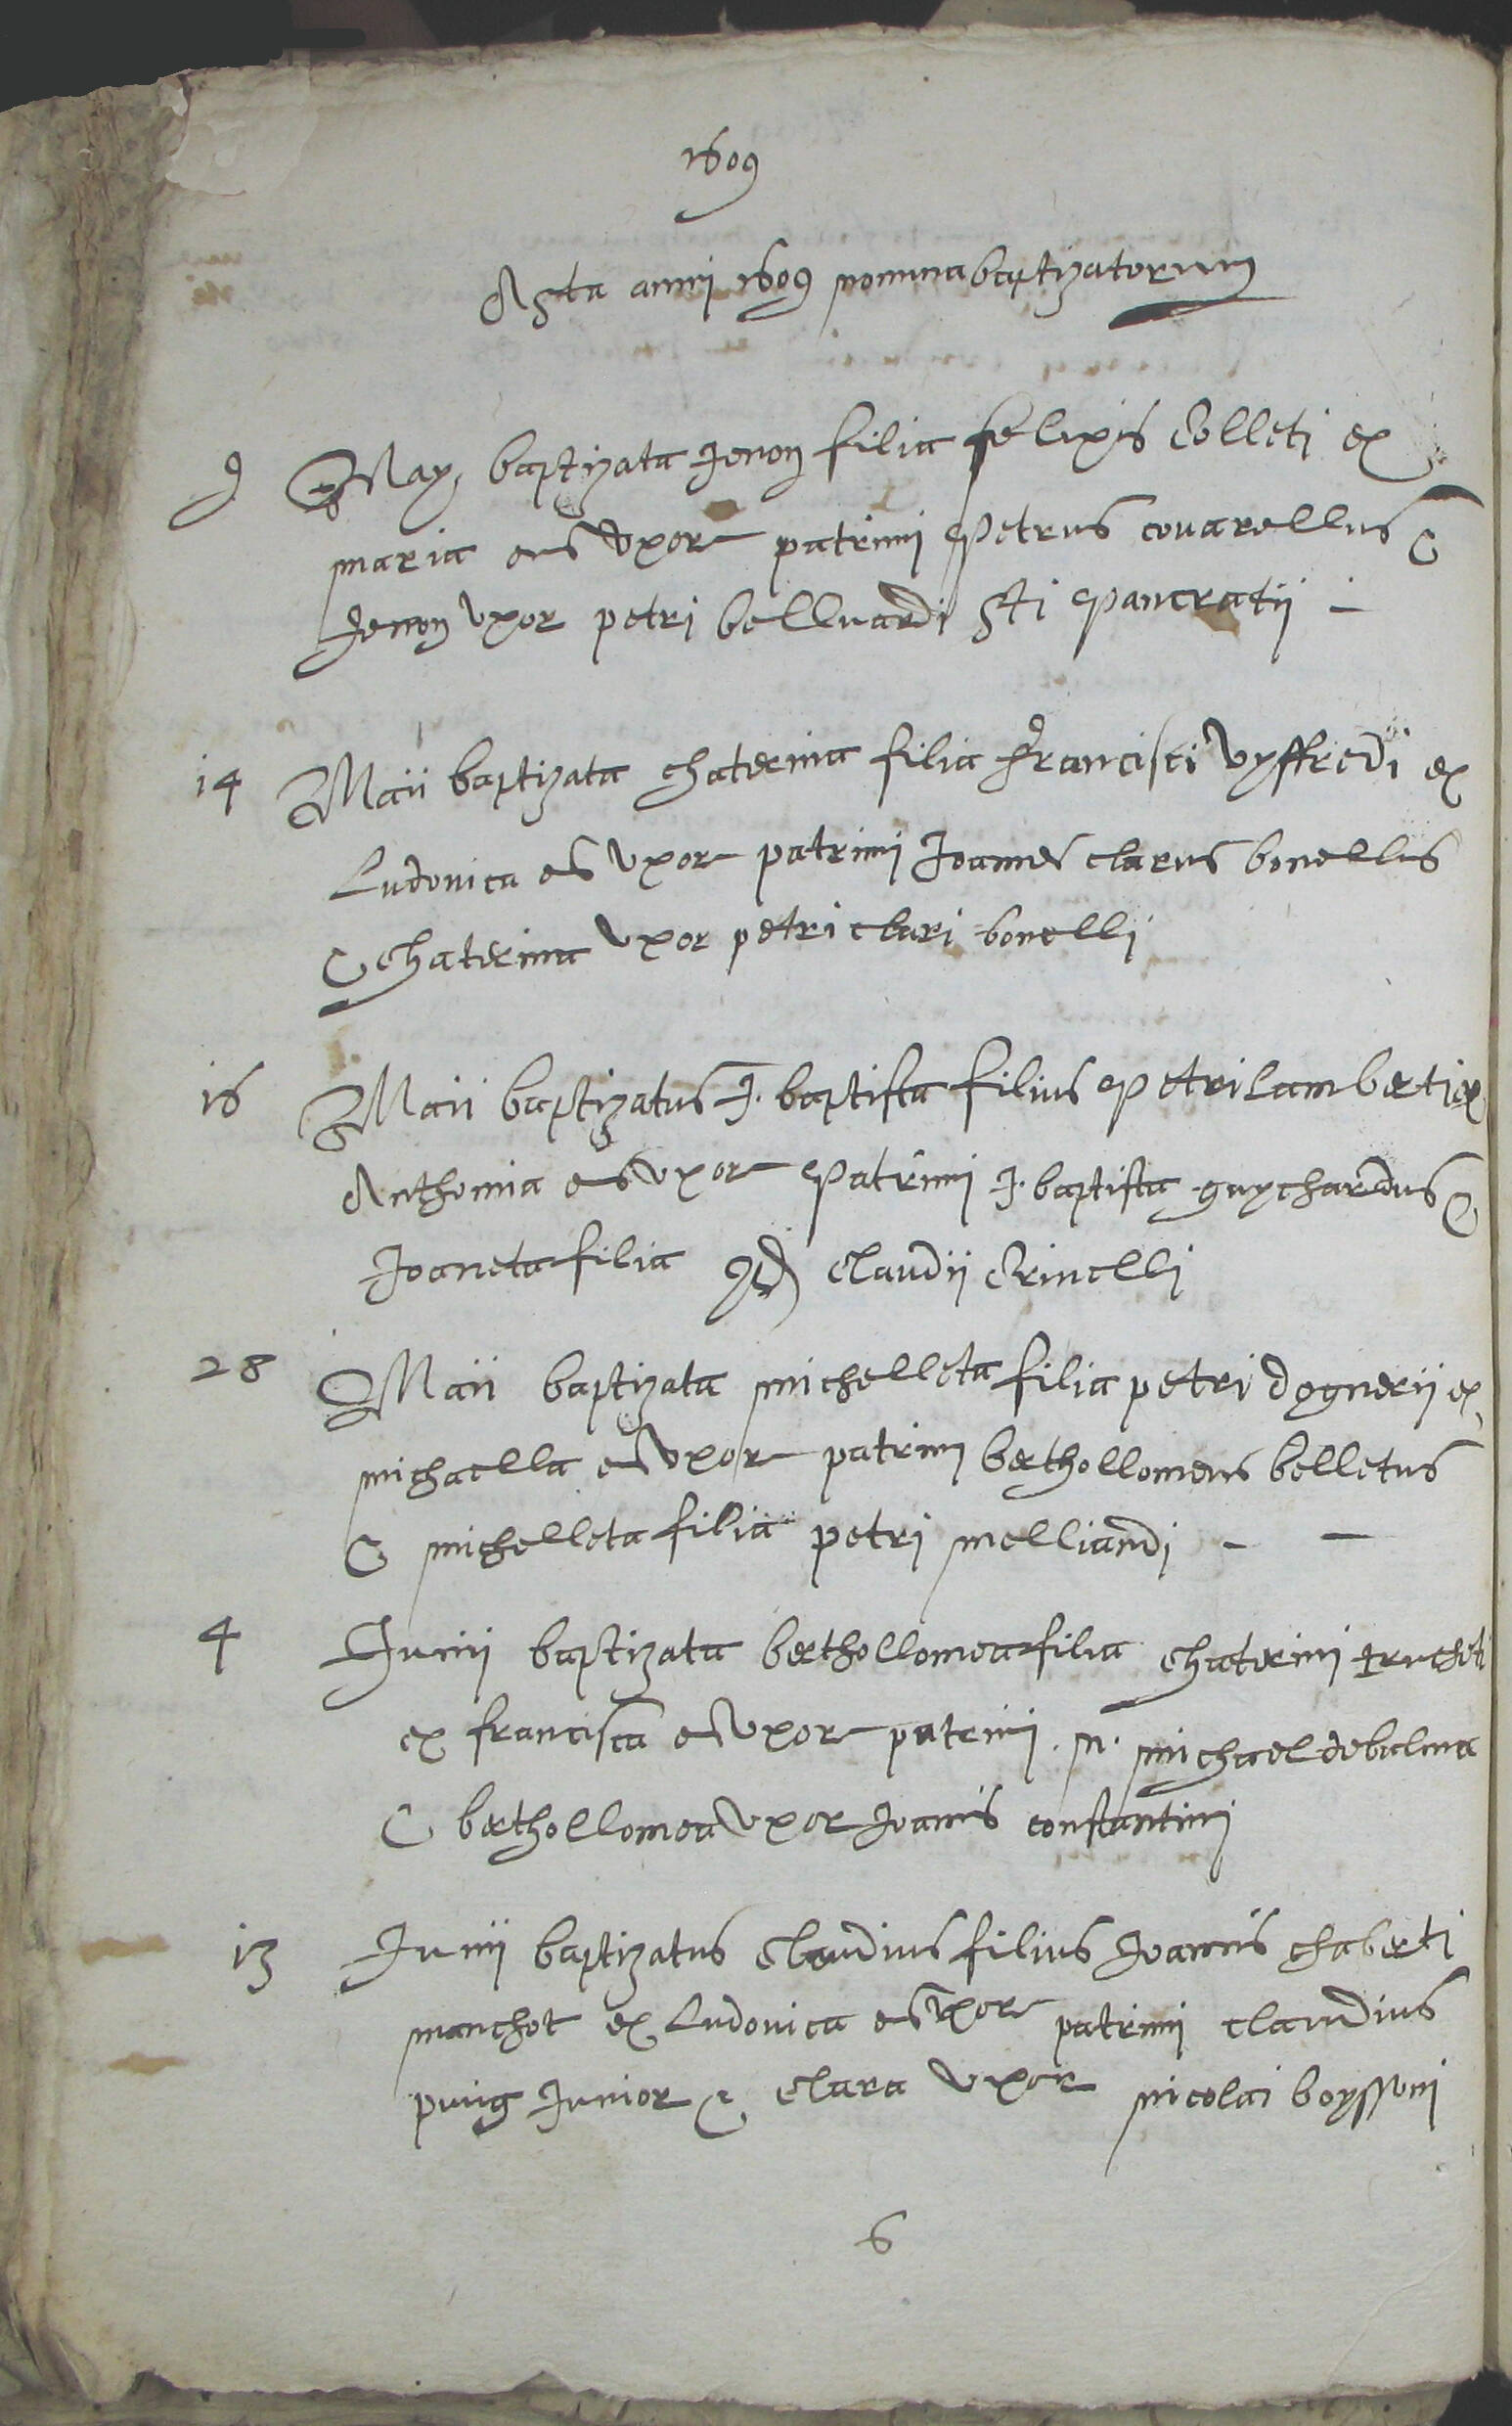 1609
Acta anni 1609 nomina baptizatorum
9 May baptizata Jenon filia felixis Colleti ex
maria eius Uxore patrini Petrus couarellus &
Jenon Uxor petri belluardi Sti Pancratii -
14 Maii baptizata Chaterina filia Francisci Vyffredi ex
Ludovica eius Uxore patrini Joannes clarus bonellus
& Chaterina Uxor petri clari bonelli
16 Maii baptizatus J. baptista filius Petri Lamberti ex
Anthonia eius Uxore Patrini J. baptista guychardus &
Joaneta filia qd Claudii Crinelli
28 Maii baptizata michelleta filia petri dognerii ex
michaella eius Uxore patrini berthollomeus belletus
& michelleta filia petri melliandi - -
4 Junii baptizata berthollomea filia Chaterini truchet
ex francisca eius Uxore patrini . n. michael debalma
& berthollomea Uxor Joanis constantini
13 Junii baptizatus Claudius filius Joannis chaberti
manchot ex Ludovica eius Uxore patrini claudius
puig Junior & Clara Uxor nicolai boyssoni
6